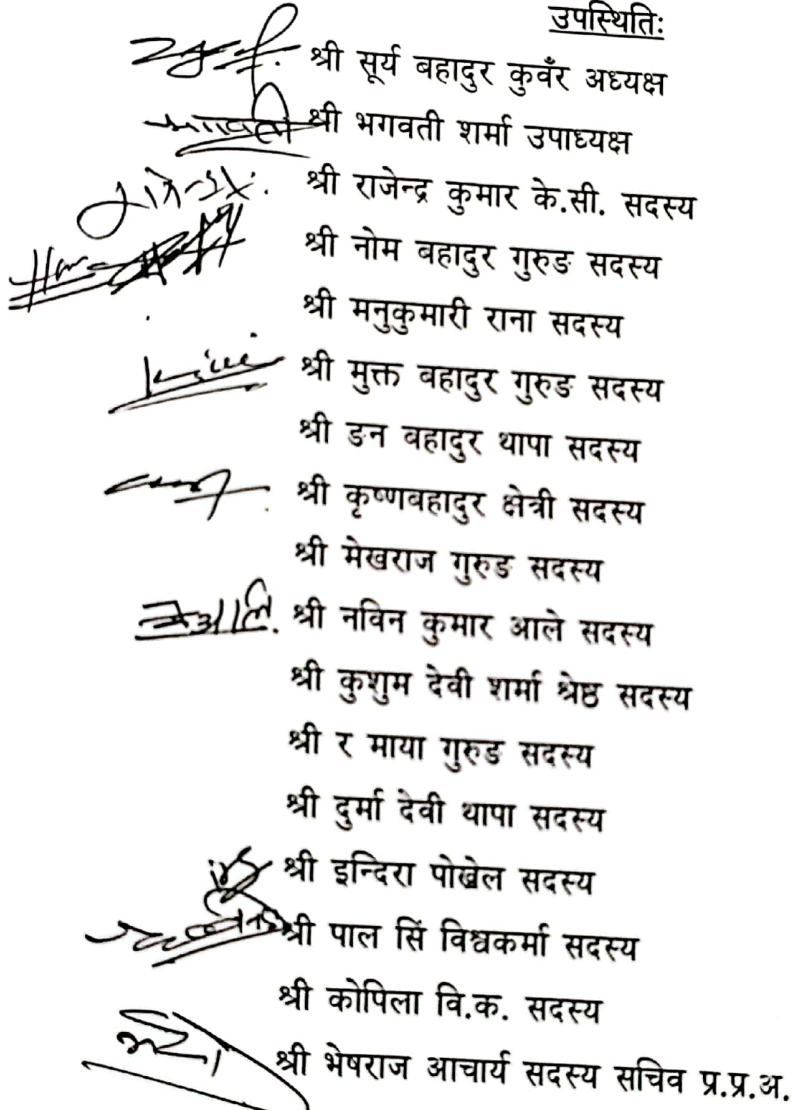 उपस्थितिः
श्री सूर्य बहादुर कुवँर अध्यक्ष
श्री भगवती शर्मा उपाध्यक्ष
श्री राजेन्द्र कुमार के.सी. सदस्य
श्री नोम बहादुर गुरुङ सदस्य
श्री मनुकुमारी राना सदस्य
श्री मुक्त बहादुर गुरुङ सदस्य
श्री ङन बहादुर थापा सदस्य
श्री कृष्णबहादुर क्षेत्री सदस्य
श्री मेखराज गुरुङ सदस्य
श्री नविन कुमार आले सदस्य
श्री कुशुम देवी शर्मा श्रेष्ठ सदस्य
श्री र माया गुरुङ सदस्य
श्री दुर्मा देवी थापा सदस्य
श्री इन्दिरा पोख्रेल सदस्य
श्री पाल सिं विश्वकर्मा सदस्य
श्री कोपिला वि.क. सदस्य
श्री भेषराज आचार्य सदस्य सचिव प्र.प्र.अ.